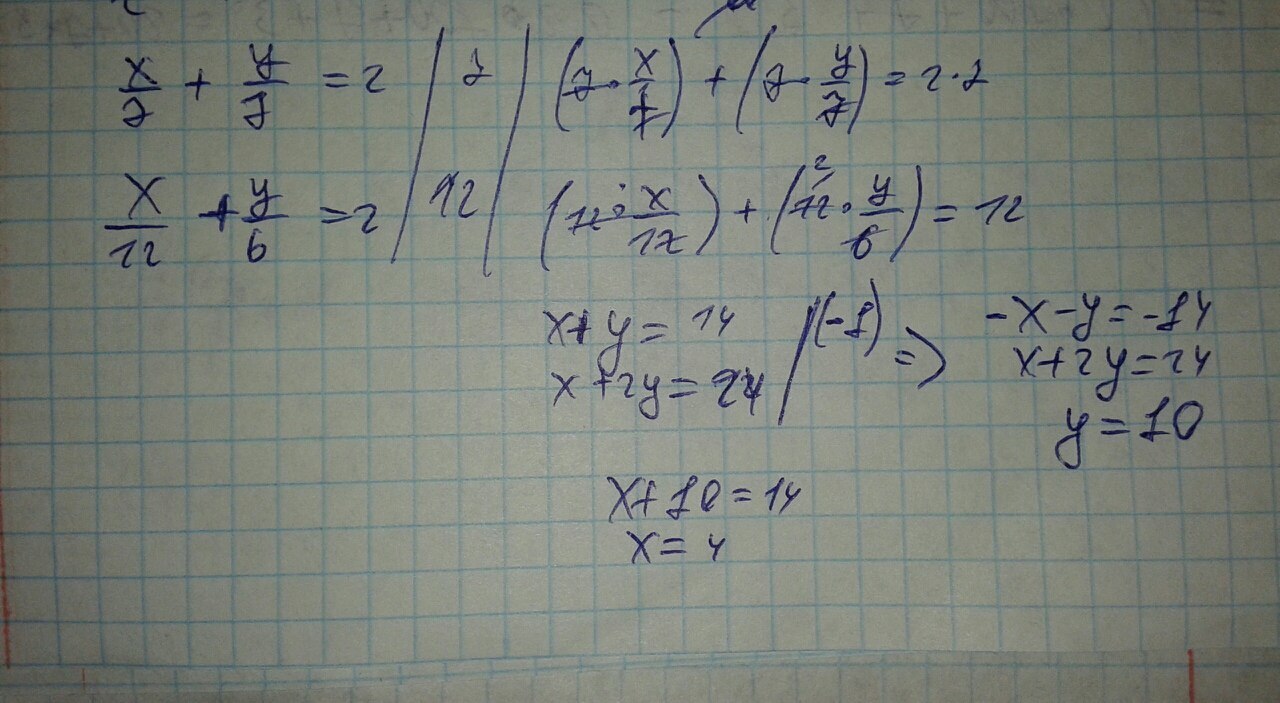 x/7 + y/7 = 2 | 7 | (7·x/7) + (7·y/7) = 2·7
x/12 + y/6 = 2 | 12 | (12·x/12) + (12·y/6) = 12
2
x+y= 14 |(-1) => -x-y=-14
x+2y= 24 x+2y=24
y=10
x+10=14
x=4